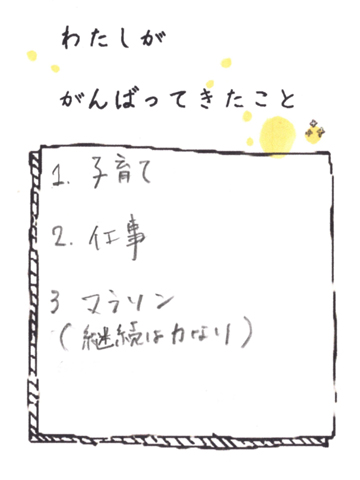 わたしが
がんばってきたこと
1. 子育て
2. 仕事
3 マラソン
(継続は力なり)